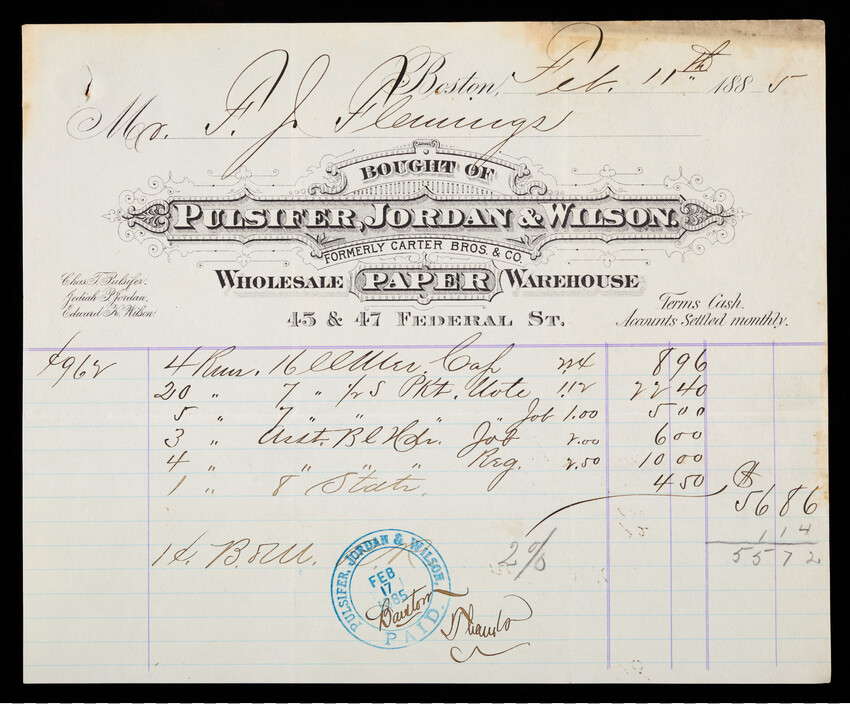 Boston, Feb. 11th 1885
Mr. F. J. Flemings
BOUGHT OF
PULSIFER, JORDAN & WILSON.
FORMERLY CARTER BROS. & CO.
WHOLESALE PAPER WAREHOUSE
45 & 47 FEDERAL ST.
Chas. T. Pulsifer.
Jediah P. Jordan.
Edward K. Wilson.
Terms Cash.
Accounts Settled monthly.
4 16 Cap 224 8 96
20 " 7 " 1/2 S Pkt. Note 1.12 22 40
5 " 7 " " " Job 1.00 5 00
3 " Asst. Job 2.00 6 00
4 " " " " Reg. 2.50 10 00
1 " 8 " 4 50
$56 86
1 14
2% 55 72
PULSIFER, JORDAN & WILSON,
FEB
17
1885
PAID.
Thanks